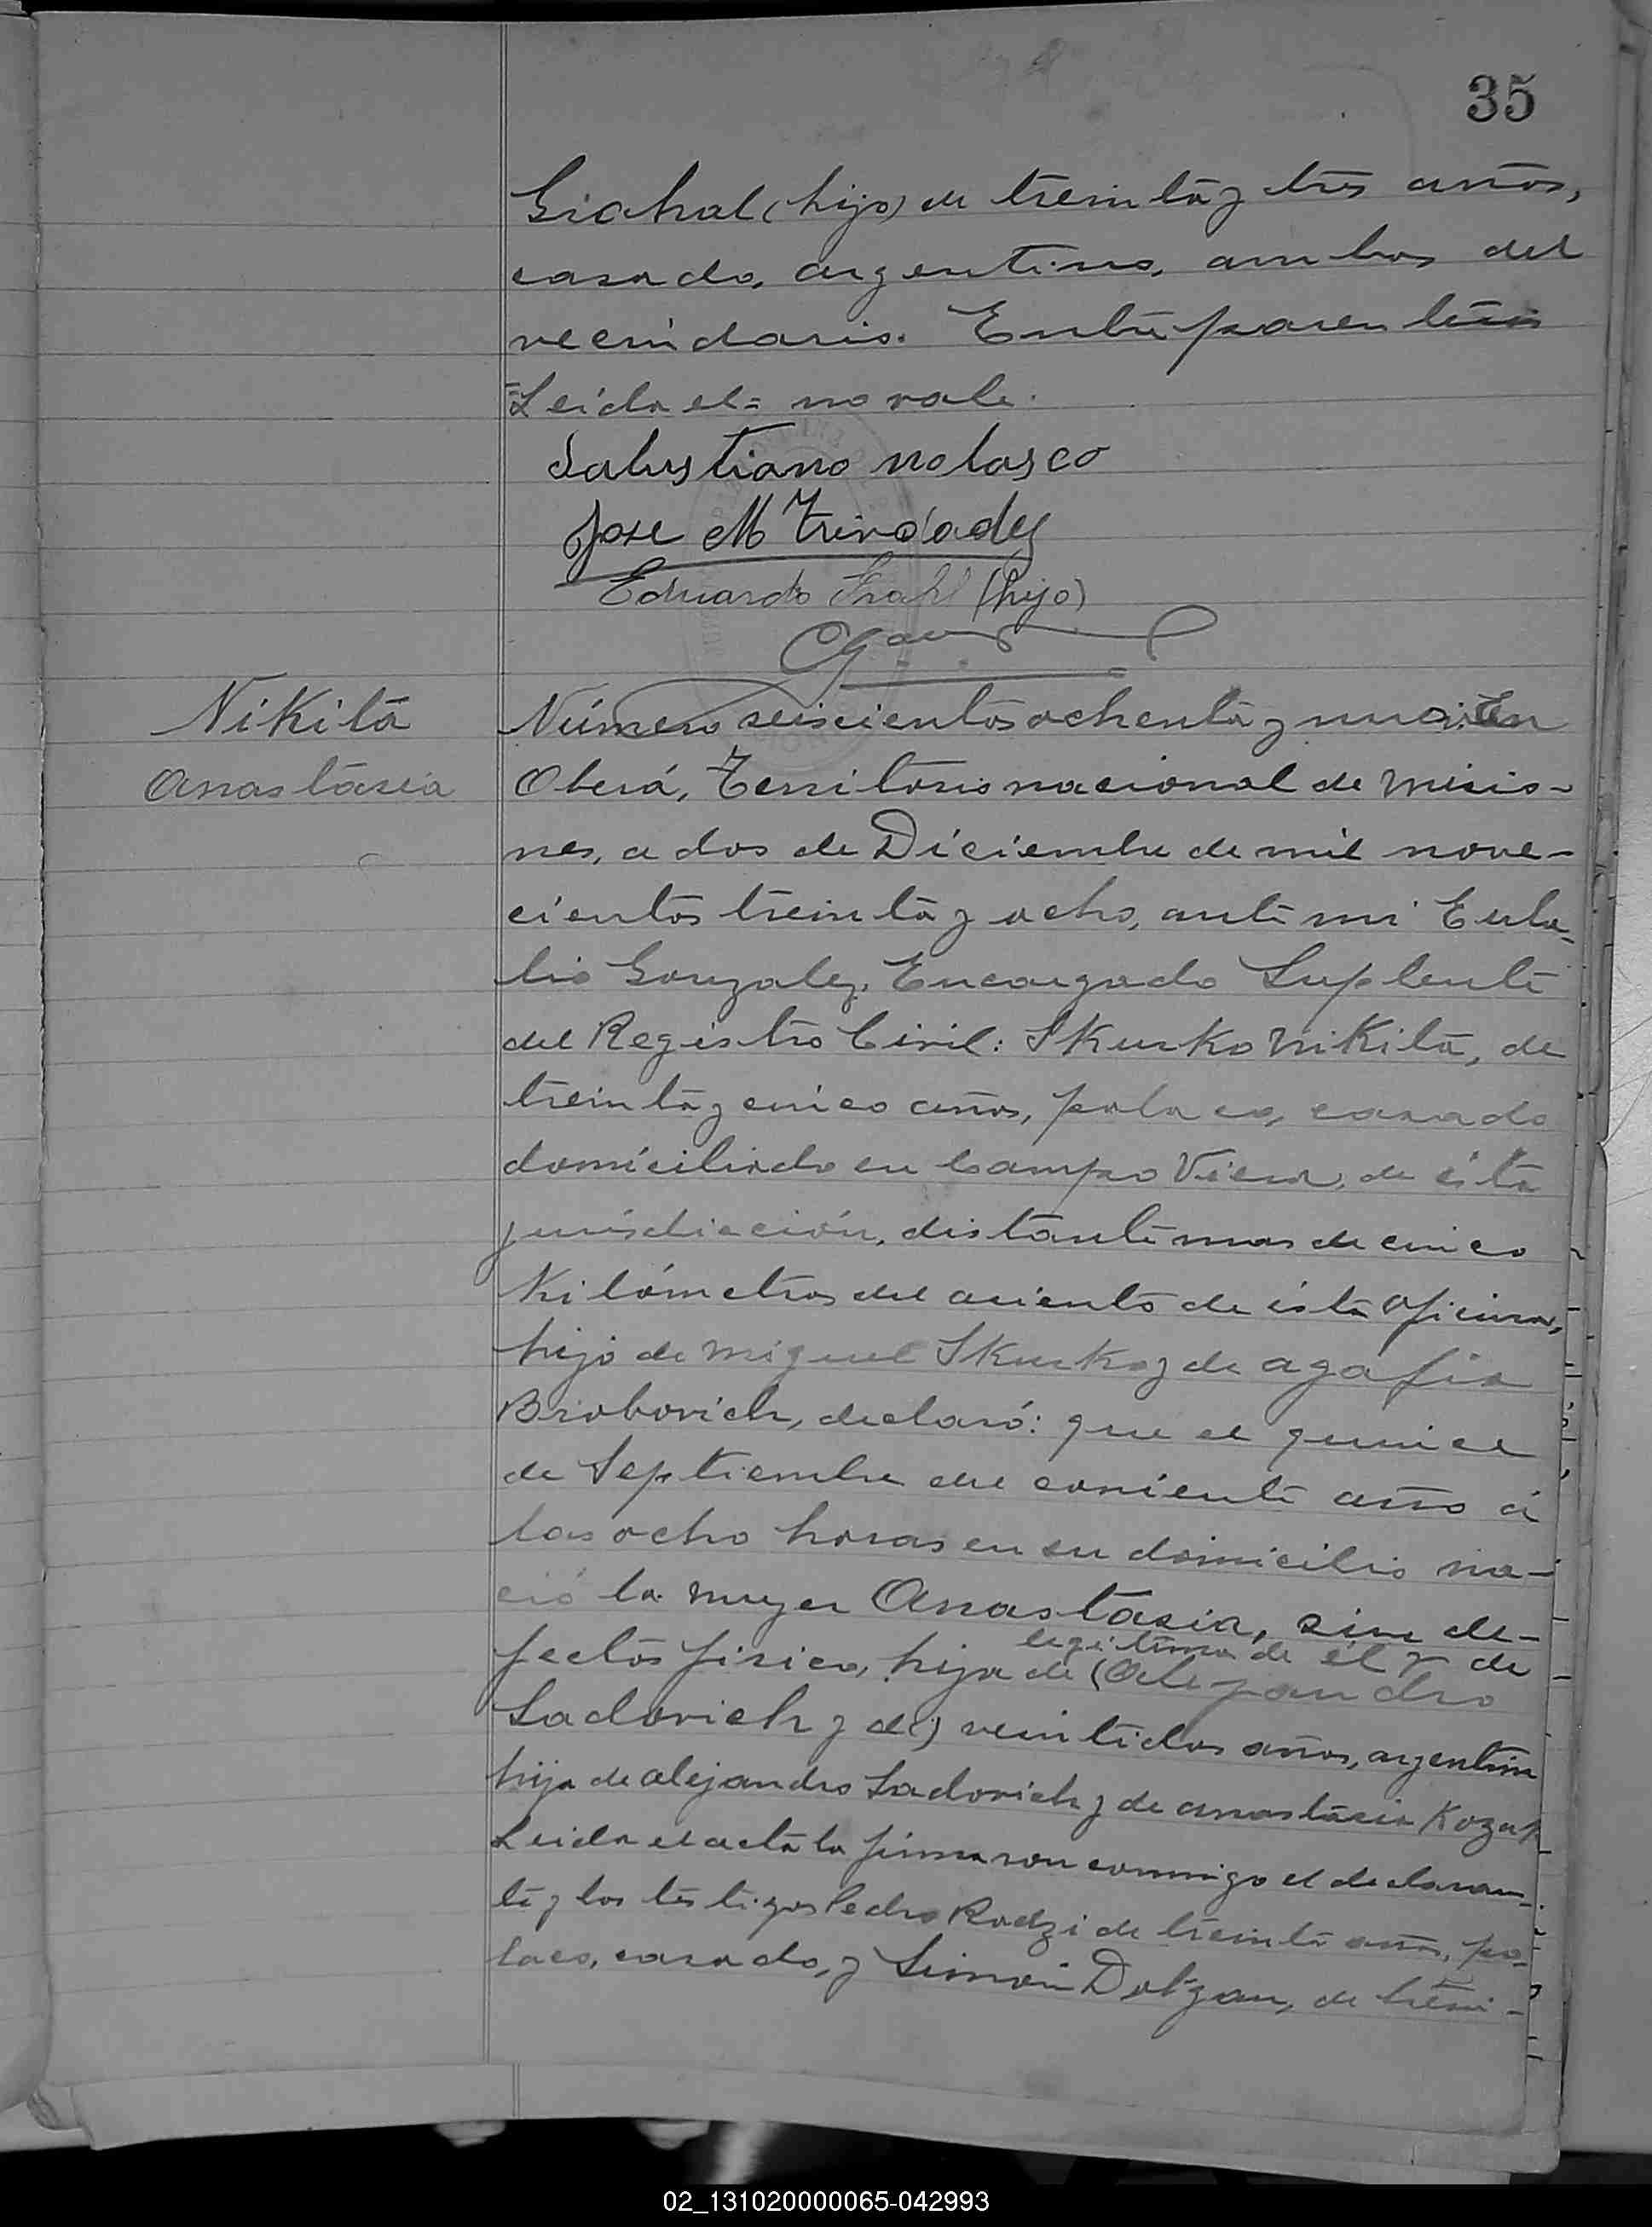 35
(hijo) de treinta y tres años,
casado, argentino, ambos del
vecindario. Entre parentesis
=Leida el= no vale.
Salustiano Nolasco
Jose M Trindadez
Eduardo (hijo)
Nikita
Anastasia
Número seiscientos ochenta y nueve. En
Oberá, Territorio nacional de Misio-
nes, a dos de Diciembre de mil nove-
cientos treinta y ocho, ante mi Eula-
lio Gonzalez, Encargado Suplente
del Registro Civil: Skurko Nikita, de
treinta y cinco años, polaco, casado
domiciliado en Campo Viera, de ésta
jurisdicción, distante mas de cinco
Kilómetros del asiento de ésta Oficina,
hijo de Miguel Skurko y de Agafia
Brobovich, declaró: que el quince
de Septiembre del corriente año á
las ocho horas en su domicilio na-
ció la mujer Anastasia, sin de-
fectos fisico, hija legitima de él y de
de (Alejandro
Sadovich y de) veintidos años, argentina
hija de Alejandro Sadovich y de Anastacia Kozak
Leida el acta la firmaron conmigo el declaran-
te y los testigos Pedro Rodzi de treinta años, po-
laco, casado, y Simón Dolzan, de trein-
02_131020000065-042993